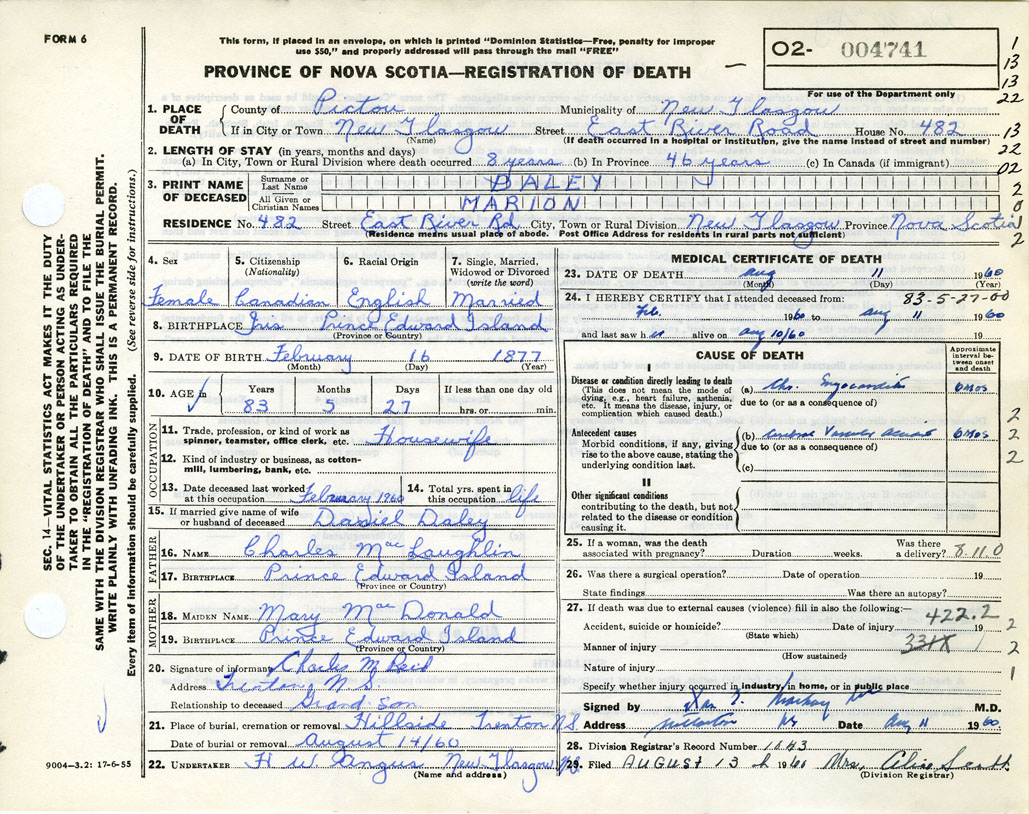 FORM 6
This form, if placed in an envelope, on which is printed "Dominion Statistics—Free, penalty for improper
use $50," and properly addressed will pass through the mail "FREE"
PROVINCE OF NOVA SCOTIA—REGISTRATION OF DEATH
02- 004741
For use of the Department only
1
13
13
22
13
22
02
2
0
1
2
1. PLACE OF DEATH County of Pictou Municipality of New Glasgow
If in City or Town New Glasgow Street East River Road House No. 482
(Name) (If death occurred in a hospital or institution, give the name instead of street and number)
2. LENGTH OF STAY (in years, months and days)
(a) In City, Town or Rural Division where death occurred 8 years (b) In Province 46 years (c) In Canada (if immigrant)
3. PRINT NAME OF DECEASED Surname or Last Name DALEY
All Given or Christian Names MARION
RESIDENCE No. 482 Street East River Rd City, Town or Rural Division New Glasgow Province Nova Scotia
(Residence means usual place of abode. Post Office Address for residents in rural parts not sufficient)
4. Sex 5. Citizenship (Nationality) 6. Racial Origin 7. Single, Married, Widowed or Divorced (write the word)
Female Canadian English Married
8. BIRTHPLACE Iris Prince Edward Island
(Province or Country)
9. DATE OF BIRTH February 16 1877
(Month) (Day) (Year)
10. AGE in Years Months Days If less than one day old
83 5 27 hrs. or min.
OCCUPATION
11. Trade, profession or kind of work as spinner, teamster, office clerk, etc. Housewife
12. Kind of industry or business, as cotton-mill, lumbering, bank, etc.
13. Date deceased last worked at this occupation February 1960 14. Total yrs. spent in this occupation life
15. If married give name of wife or husband of deceased Daniel Daley
FATHER
16. NAME Charles MacLaughlin
17. BIRTHPLACE Prince Edward Island
(Province or Country)
MOTHER
18. MAIDEN NAME Mary MacDonald
19. BIRTHPLACE Prince Edward Island
(Province or Country)
20. Signature of informant Charles M Reid
Address Trenton N.S.
Relationship to deceased Grandson
21. Place of burial, cremation or removal Hillside Trenton N.S.
Date of burial or removal August 14/60
22. UNDERTAKER H W Angus New Glasgow N.S.
(Name and address)
MEDICAL CERTIFICATE OF DEATH
23. DATE OF DEATH Aug 11 1960
(Month) (Day) (Year)
24. I HEREBY CERTIFY that I attended deceased from: 83-5-27-00
Feb. 1960 to Aug 11 1960
and last saw h er alive on Aug 10/60 19
CAUSE OF DEATH
Approximate interval between onset and death
I
Disease or condition directly leading to death
(This does not mean the mode of dying, e.g., heart failure, asthenia, etc. It means the disease, injury, or complication which caused death.)
(a) Chr. Myocarditis 6 mos
due to (or as a consequence of)
Antecedent causes
Morbid conditions, if any, giving rise to the above cause, stating the underlying condition last.
(b) Vascular 6 mos
due to (or as a consequence of)
(c)
II
Other significant conditions contributing to the death, but not related to the disease or condition causing it.
2
2
2
25. If a woman, was the death associated with pregnancy? Duration weeks. Was there a delivery? 8.11.0
26. Was there a surgical operation? Date of operation 19
State findings Was there an autopsy?
27. If death was due to external causes (violence) fill in also the following:—
422.2
Accident, suicide or homicide? Date of injury 19 2
(State which)
331X 1
Manner of injury 2
(How sustained)
Nature of injury 1
Specify whether injury occurred in industry, in home, or in public place
Signed by M.D.
Address NS Date Aug 11 1960
28. Division Registrar's Record Number 1043
29. Filed AUGUST 13th 1960 Mrs. Alice
(Division Registrar)
SEC. 14—VITAL STATISTICS ACT MAKES IT THE DUTY
OF THE UNDERTAKER OR PERSON ACTING AS UNDER-
TAKER TO OBTAIN ALL THE PARTICULARS REQUIRED
IN THE "REGISTRATION OF DEATH" AND TO FILE THE
SAME WITH THE DIVISION REGISTRAR WHO SHALL ISSUE THE BURIAL PERMIT.
WRITE PLAINLY WITH UNFADING INK. THIS IS A PERMANENT RECORD.
Every item of information should be carefully supplied. (See reverse side for instructions.)
9004—3.2: 17-6-55